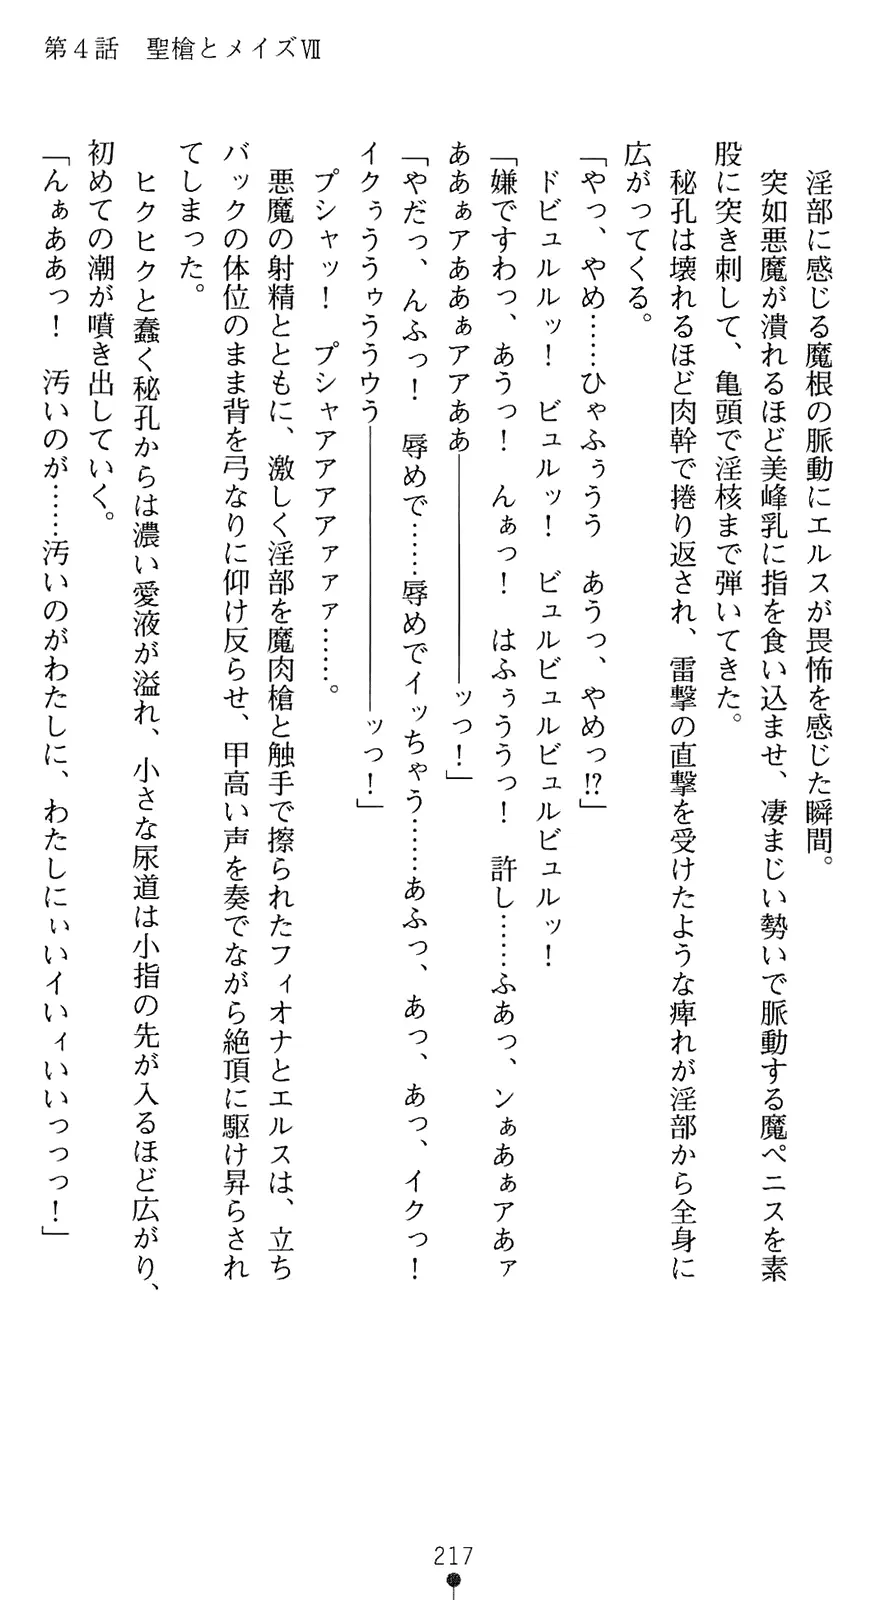 第４話　聖槍とメイズⅦ
淫部に感じる魔根の脈動にエルスが畏怖を感じた瞬間。
突如悪魔が潰れるほど美峰乳に指を食い込ませ、凄まじい勢いで脈動する魔ペニスを素
股に突き刺して、亀頭で淫核まで弾いてきた。
秘孔は壊れるほど肉幹で捲り返され、雷撃の直撃を受けたような痺れが淫部から全身に
広がってくる。
「やっ、やめ……ひゃふぅうう　あうっ、やめっ!?」
ドビュルルッ！　ビュルッ！　ビュルビュルビュルビュルッ！
「嫌ですわっ、あうっ！　んぁっ！　はふぅううっ！　許し……ふあっ、ンぁあぁアあァ
ああぁアああぁアアああ――――――――ッっ！」
「やだっ、んふっ！　辱めで……辱めでイッちゃう……あふっ、あっ、あっ、イクっ！
イクぅううゥううウう――――――――――ッっ！」
プシャッ！　プシャアアアアァァァ……。
悪魔の射精とともに、激しく淫部を魔肉槍と触手で擦られたフィオナとエルスは、立ち
バックの体位のまま背を弓なりに仰け反らせ、甲高い声を奏でながら絶頂に駆け昇らされ
てしまった。
ヒクヒクと蠢く秘孔からは濃い愛液が溢れ、小さな尿道は小指の先が入るほど広がり、
初めての潮が噴き出していく。
「んぁああっ！　汚いのが……汚いのがわたしに、わたしにぃいイいィいいっっっ！」
217